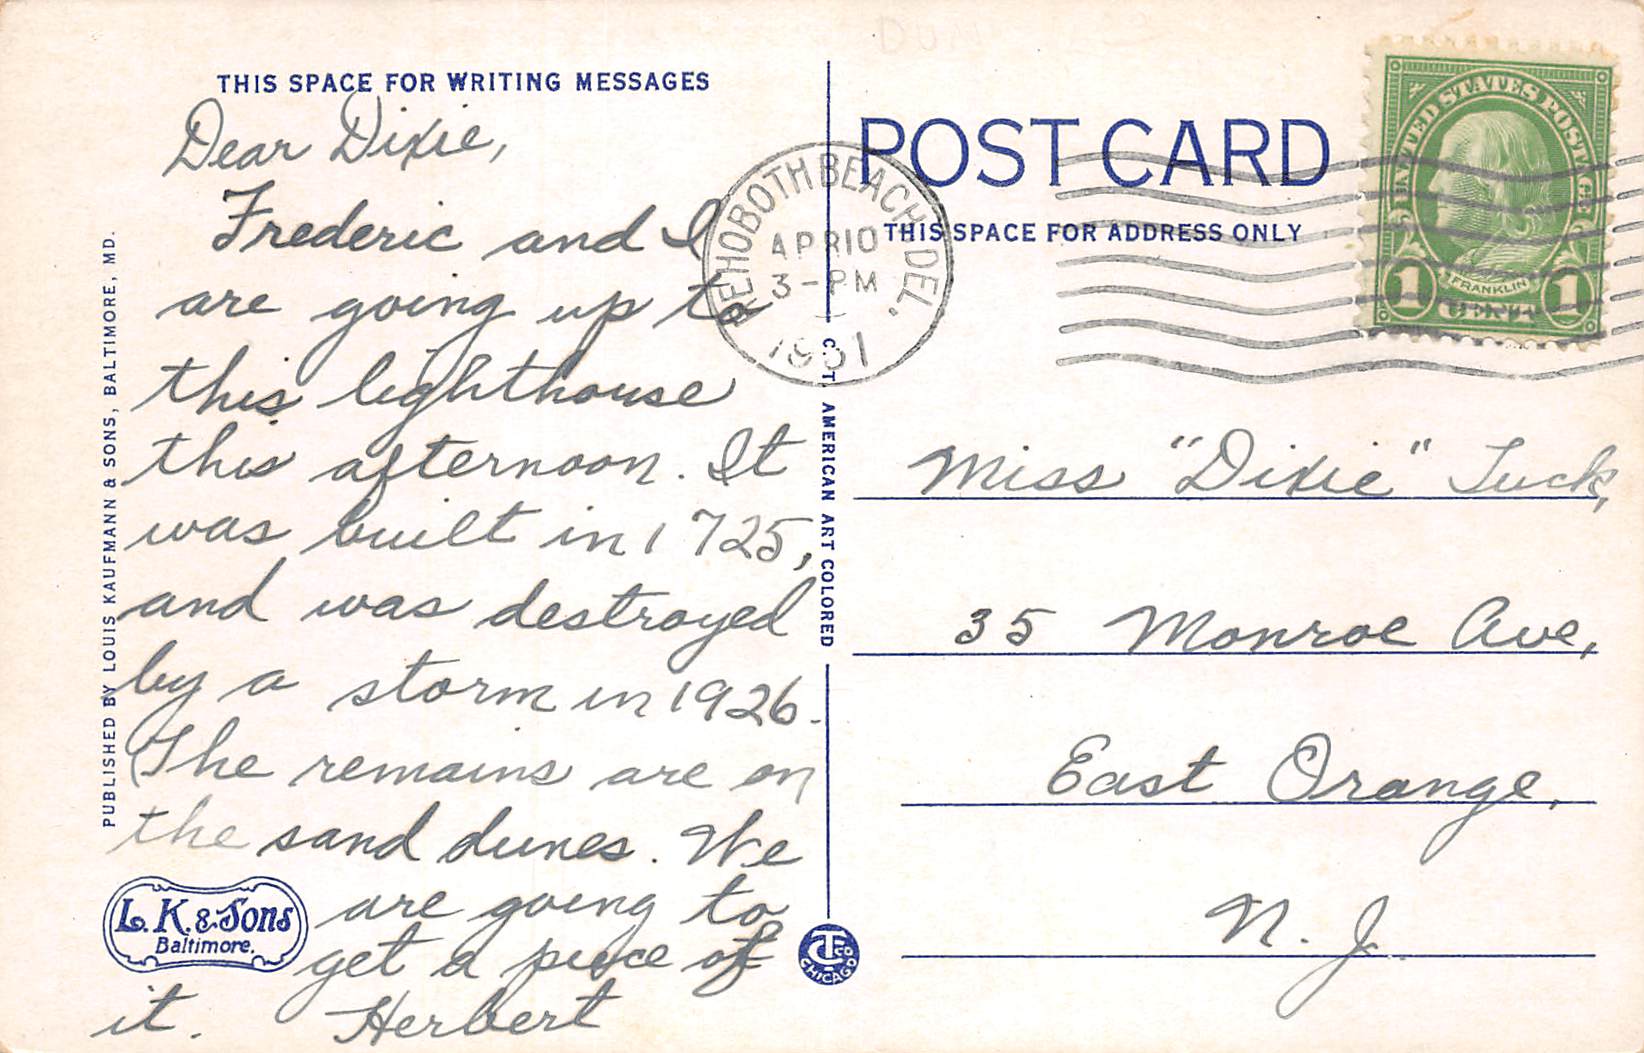 THIS SPACE FOR WRITING MESSAGES
Dear Dixie,
Frederic and I
are going up to
this lighthouse
this afternoon. It
was built in 1725,
and was destroyed
by a storm in 1926.
The remains are on
the sand dunes. We
are going to
get a piece of
it. Herbert
PUBLISHED BY LOUIS KAUFMANN & SONS, BALTIMORE, MD.
L. K. & Sons
Baltimore.
C. T. AMERICAN ART COLORED
CT CO
CHICAGO
REHOBOTH BEACH, DEL.
APR 10
3-PM
1931
POST CARD
THIS SPACE FOR ADDRESS ONLY
UNITED STATES POSTAGE
FRANKLIN
1 CENT 1
Miss "Dixie" Tuck,
35 Monroe Ave,
East Orange,
N. J.